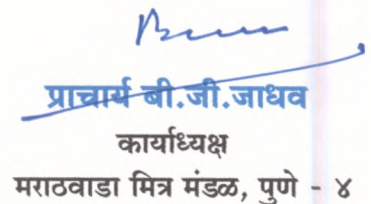 प्राचार्य बी.जी.जाधव
कार्याध्यक्ष
मराठवाडा मित्र मंडळ, पुणे - ४